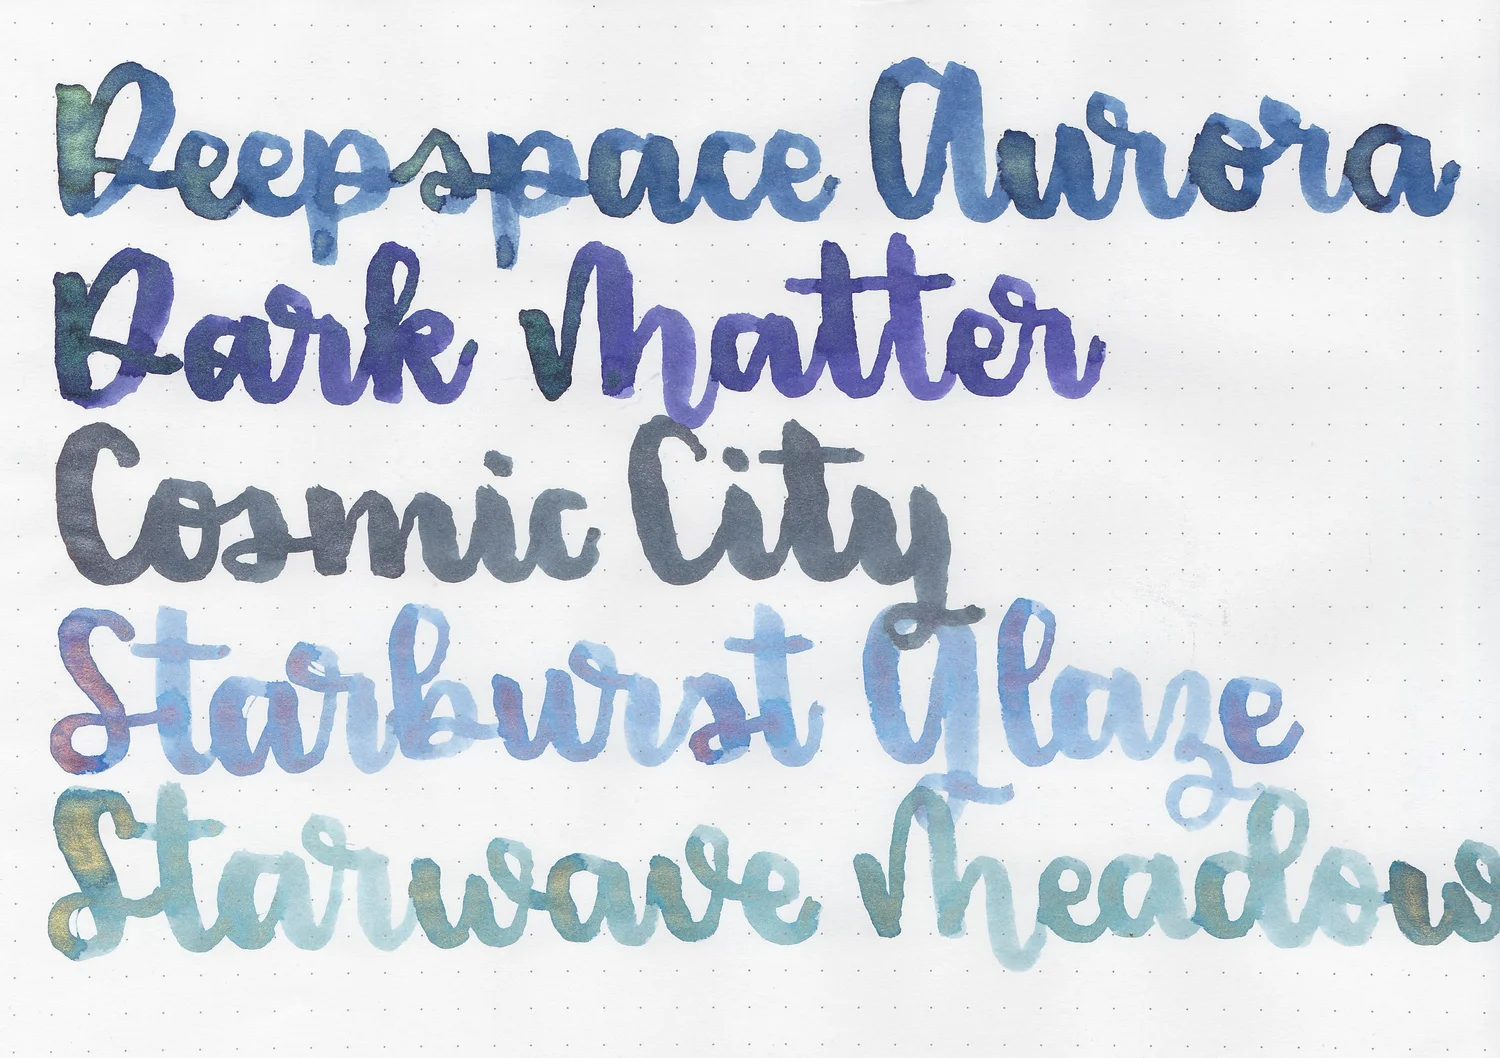 Deepspace Aurora
Dark Matter
Cosmic City
Starburst Glaze
Starwave Meadow